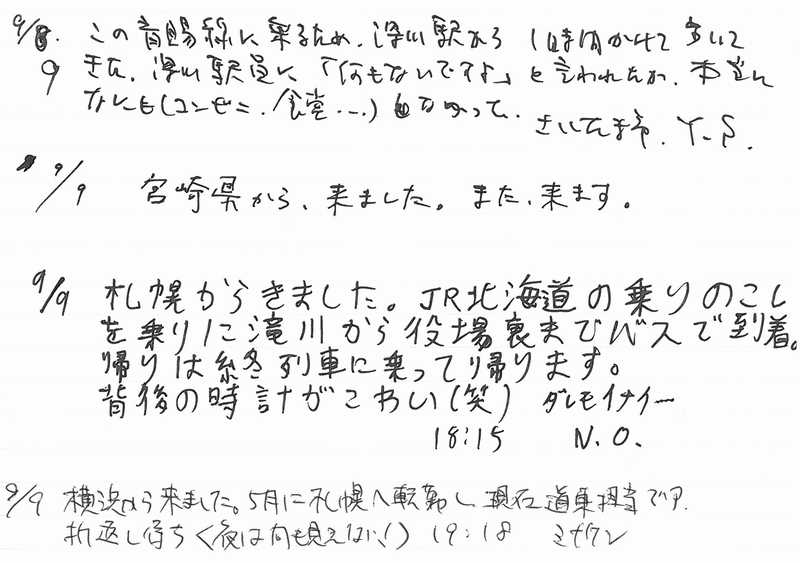 9/8. この留萌線に乗るため、深川駅から 1時間かけて歩いて
9 きた。深川駅員に「何もないですよ」と言われたが、本当に
なにも(コンビニ、食堂…)なかった。
さいたま市. Y.S.
9/9 宮崎県から、来ました。また、来ます。
9/9 札幌からきました。JR北海道の乗りのこし
を乗りに滝川から役場裏までバスで到着。
帰りは終列車に乗って帰ります。
背後の時計がこわい(笑) ダレモイナイー
18:15 N.O.
9/9 横浜から来ました。5月に札幌へ転勤し 現在 道東担当です.
折返し待ち〈夜は何も見えない!〉 19:18 ミサワン